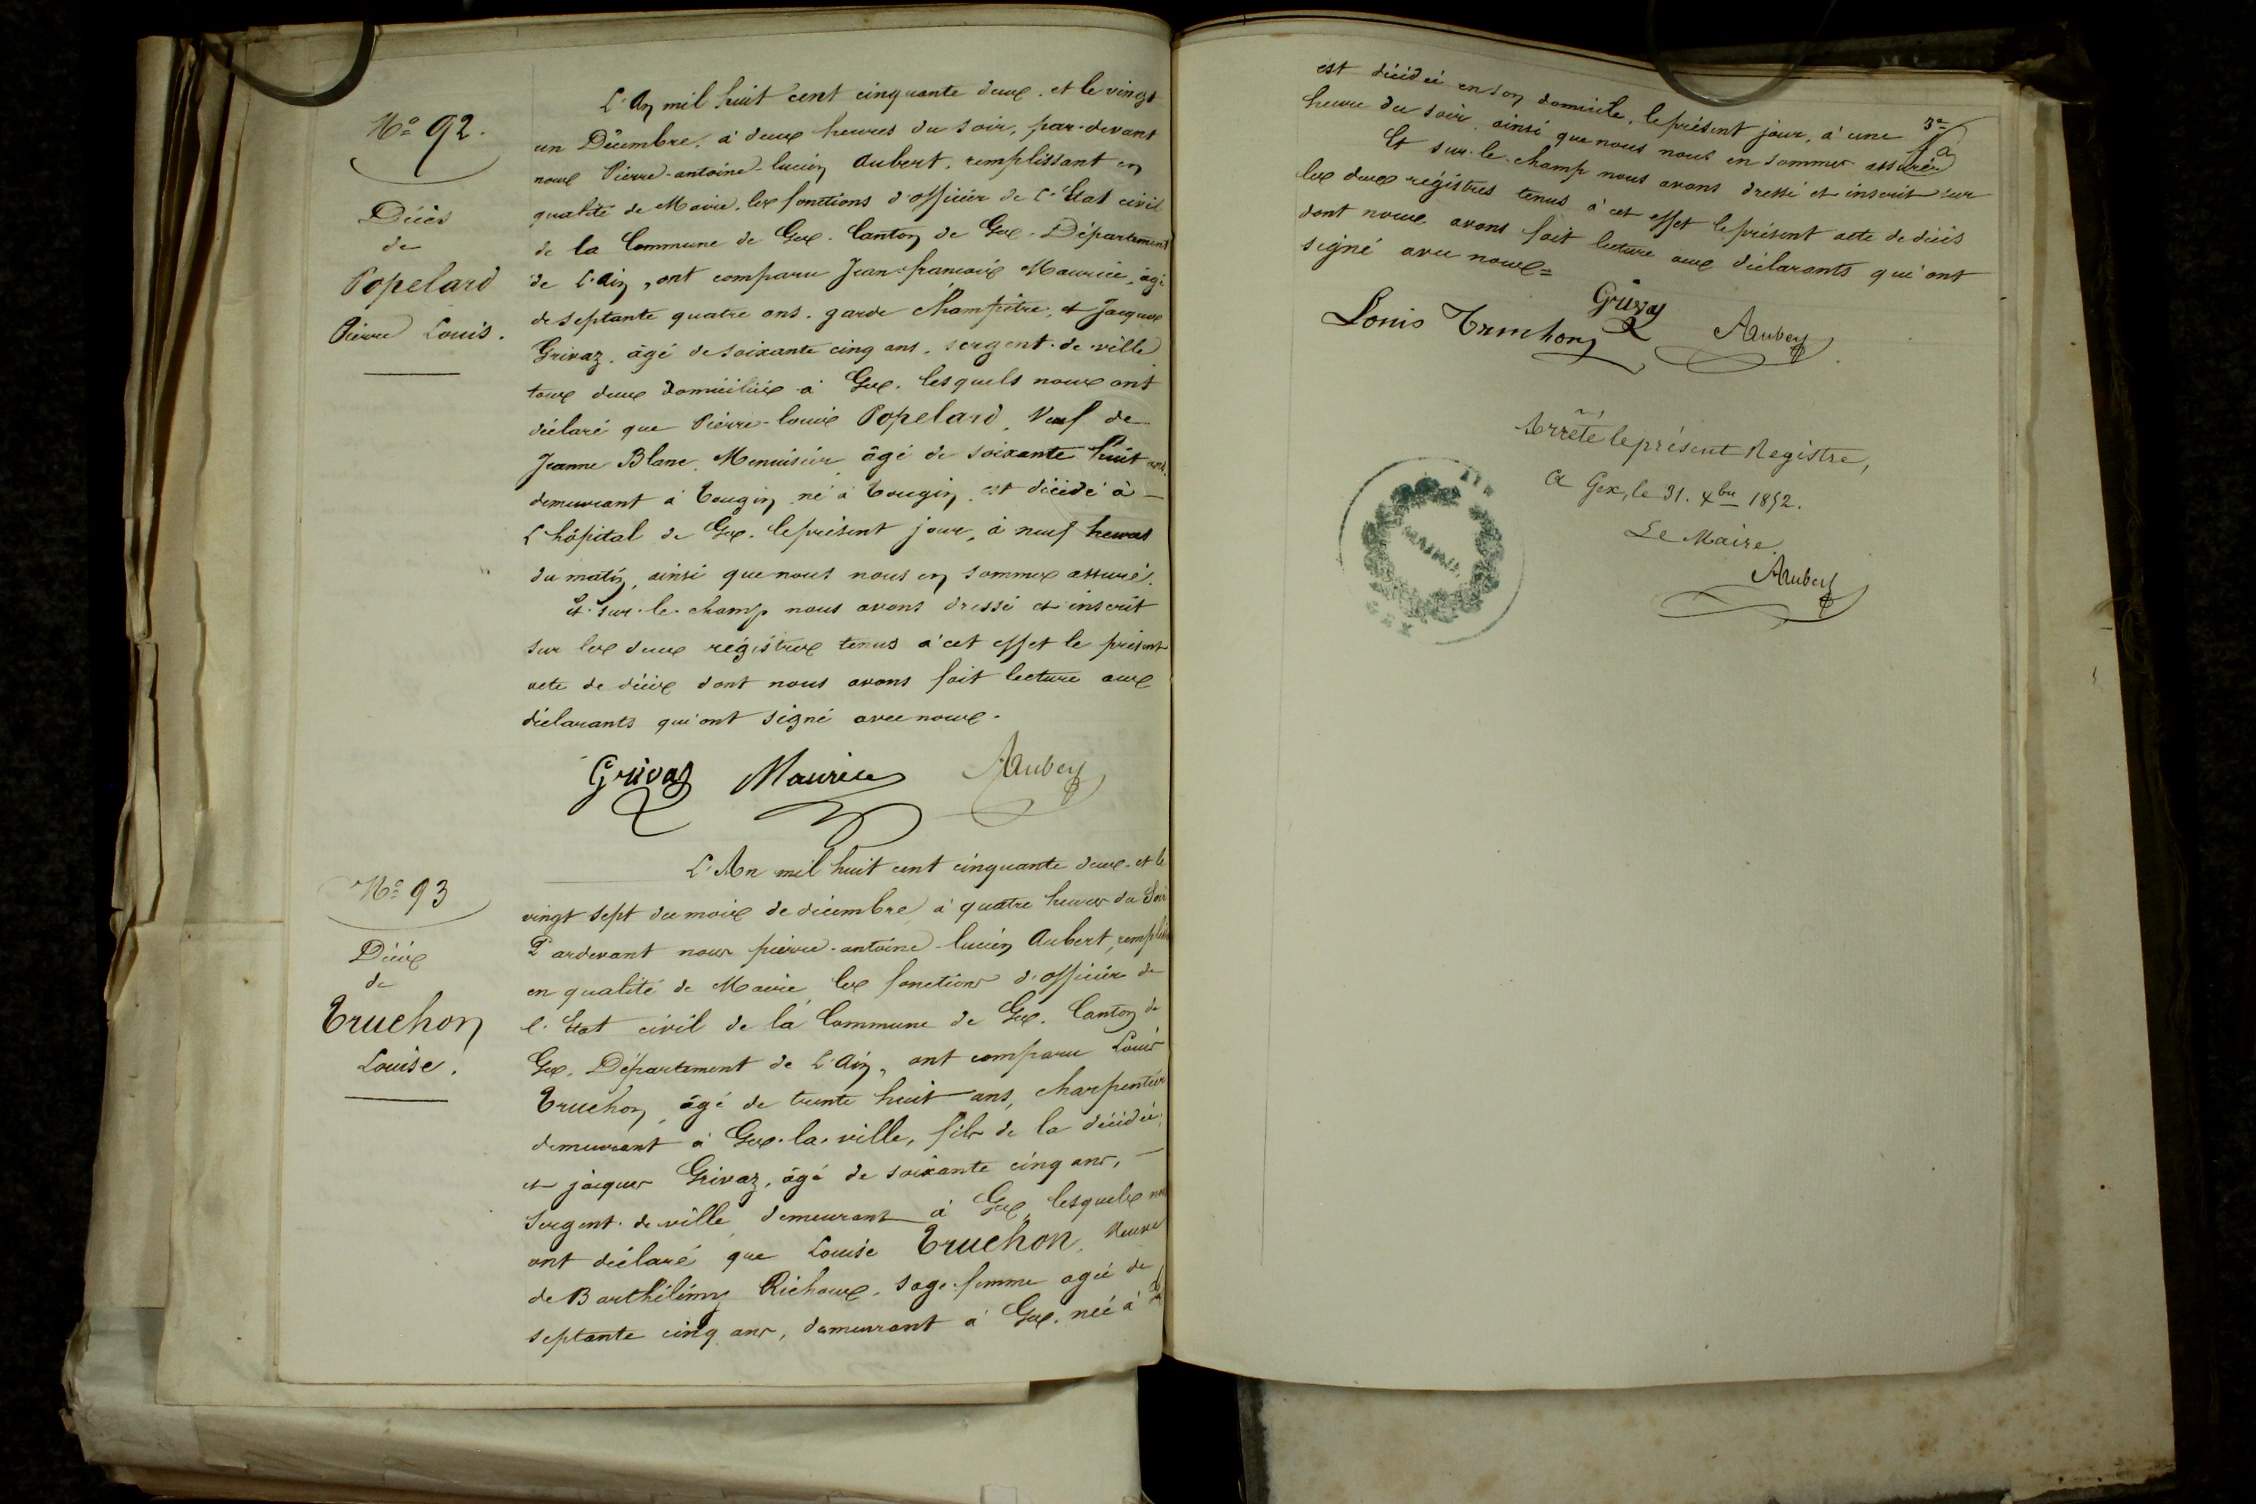 N° 92.
Décès
de
Popelard
Pierre Louis.
L'An mil huit cent cinquante deux. et le vingt
un Décembre, à deux heures du soir, par-devant
nous Pierre-antoine-lucien Aubert, remplissant en
qualité de Maire, les fonctions d'officier de l'Etat civil
de la Commune de Gex. Canton de Gex. Département
de l'Ain, ont comparu Jean-francois Maurice, âgé
de septante quatre ans, garde champêtre, et Jacques
Grivaz, âgé de soixante cinq ans, sergent-de-ville
tous deux domiciliés à Gex. lesquels nous ont
déclaré que Pierre-louis Popelard, Veuf de
Jeanne Blanc, Menuisier âgé de soixante huit ans,
demeurant à Tougin, né à Tougin, est décédé à
l'hôpital de Gex. le présent jour, à neuf heures
du matin, ainsi que nous nous en sommes assuré.
Et sur-le-champ nous avons dressé et inscrit
sur les deux régistres tenus à cet effet le présent
acte de décès dont nous avons fait lecture aux
déclarants qui ont signé avec nous.
Grivaz Maurice Aubert
N° 93
Décès
de
Truchon
Louise.
L'An mil huit cent cinquante deux. et le
vingt sept du mois de décembre à quatre heures du Soir
Pardevant nous pierre-antoine-lucien Aubert,
en qualité de Maire les fonctions d'officier de
l'Etat civil de la Commune de Gex. Canton de
Gex. Département de l'Ain, ont comparu Louis
Truchon, âgé de trente huit ans, charpentier
demeurant à Gex-la-ville, fils de la décédée,
et jacques Grivaz, âgé de soixante cinq ans,
Sergent-de-ville, demeurant à Gex, lesquels
ont déclaré que Louise Truchon, Veuve
de Barthélémy Richoux, sage-femme agée de
septante cinq ans, demeurant à Gex, née à
est décédée en son domicile, le présent jour, à une
heure du soir, ainsi que nous nous en sommes assuré.
Et sur-le-champ nous avons dressé et inscrit sur
les deux régistres tenus à cet effet le présent acte de décès
dont nous avons fait lecture aux déclarants qui ont
signé avec nous=
Louis Truchon Grivaz Aubert
Arrêté le présent Registre,
A Gex, le 31. Xbre 1852.
Le Maire.
Aubert
MAIRIE
GEX